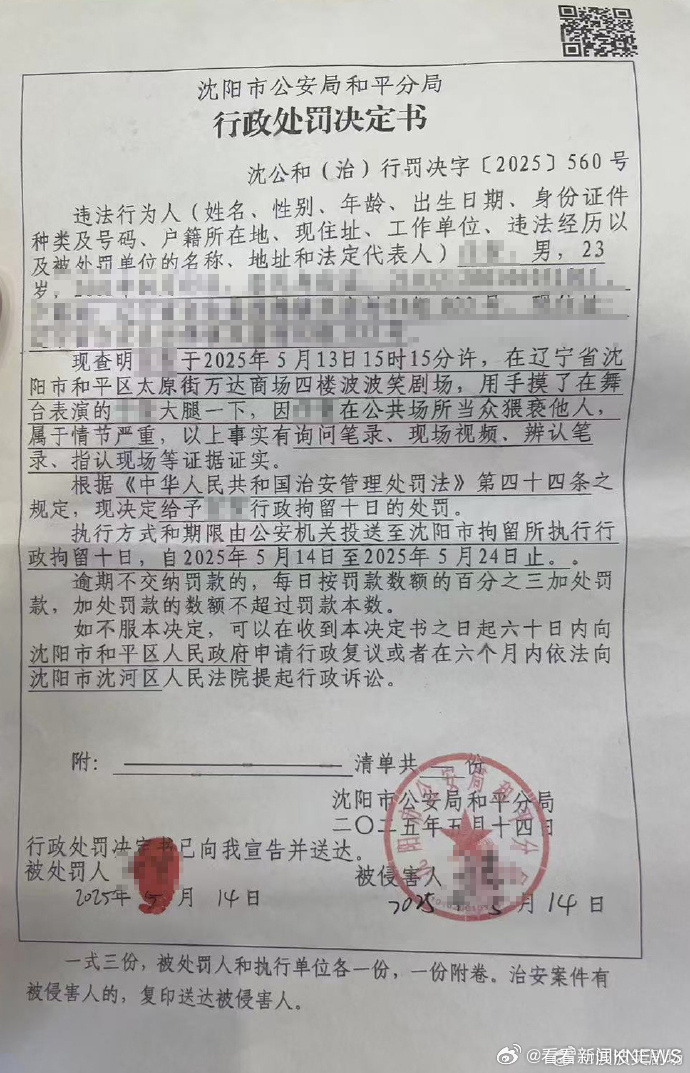 沈阳市公安局和平分局
行政处罚决定书
沈公和（治）行罚决字〔2025〕560号
违法行为人（姓名、性别、年龄、出生日期、身份证件
种类及号码、户籍所在地、现住址、工作单位、违法经历以
及被处罚单位的名称、地址和法定代表人）男，23
岁，
号
现查明于2025年5月13日15时15分许，在辽宁省沈
阳市和平区太原街万达商场四楼波波笑剧场，用手摸了在舞
台表演的大腿一下，因在公共场所当众猥亵他人，
属于情节严重，以上事实有询问笔录、现场视频、辨认笔
录、指认现场等证据证实。
根据《中华人民共和国治安管理处罚法》第四十四条之
规定，现决定给予行政拘留十日的处罚。
执行方式和期限由公安机关投送至沈阳市拘留所执行行
政拘留十日，自2025年5月14日至2025年5月24日止。。
逾期不交纳罚款的，每日按罚款数额的百分之三加处罚
款，加处罚款的数额不超过罚款本数。
如不服本决定，可以在收到本决定书之日起六十日内向
沈阳市和平区人民政府申请行政复议或者在六个月内依法向
沈阳市沈河区人民法院提起行政诉讼。
附：清单共 份
沈阳市公安局和平分局
二〇二五年五月十四日
行政处罚决定书已向我宣告并送达。
被处罚人 被侵害人
2025年5月14日 2025 5月14日
一式三份，被处罚人和执行单位各一份，一份附卷。治安案件有
被侵害人的，复印送达被侵害人。
@看看新闻KNEWS